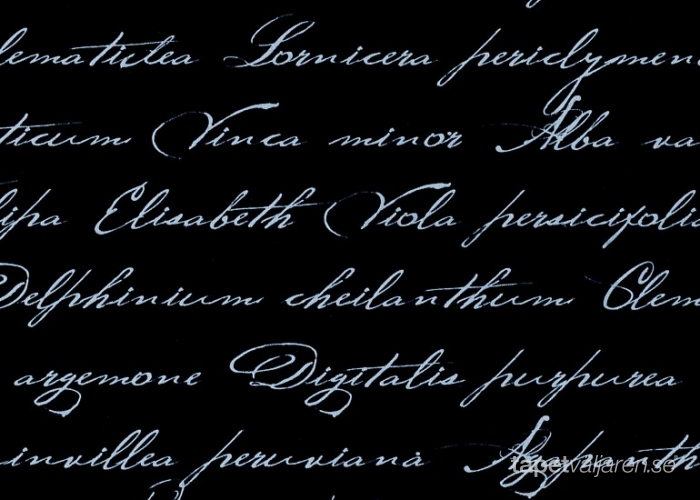 lematictea Lornicera periclymen
ticum Vinca minor Alba va
lipa Elisabeth Viola persicifolia
Delphinium cheilanthum Clem
argemone Digitalis purpurea
invillea peruviana Agapanth
tapetvaljaren.se